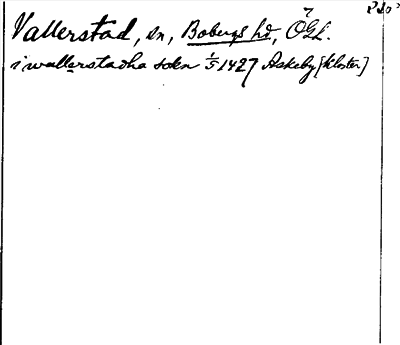 Vallerstad, sn, Bobergs hd, Ögl.
i wallerstadha sokn 1/5 1427 Askeby [kloster]